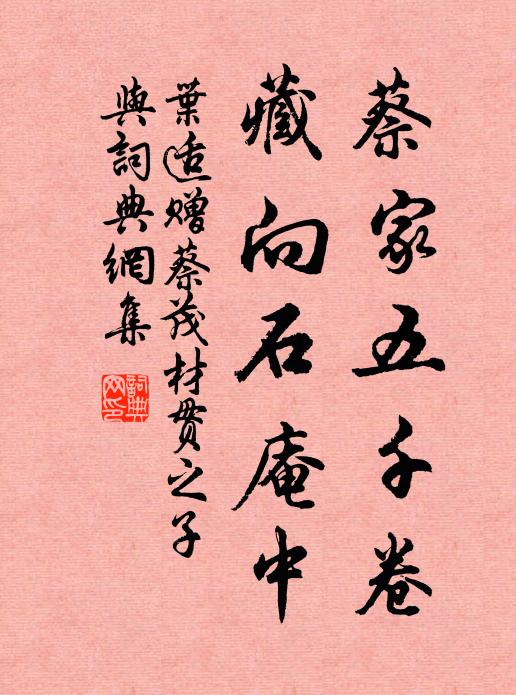 蔡家五千卷
藏向石庵中
葉适贈蔡茂材貫之子
與詞典網集
詞典網印